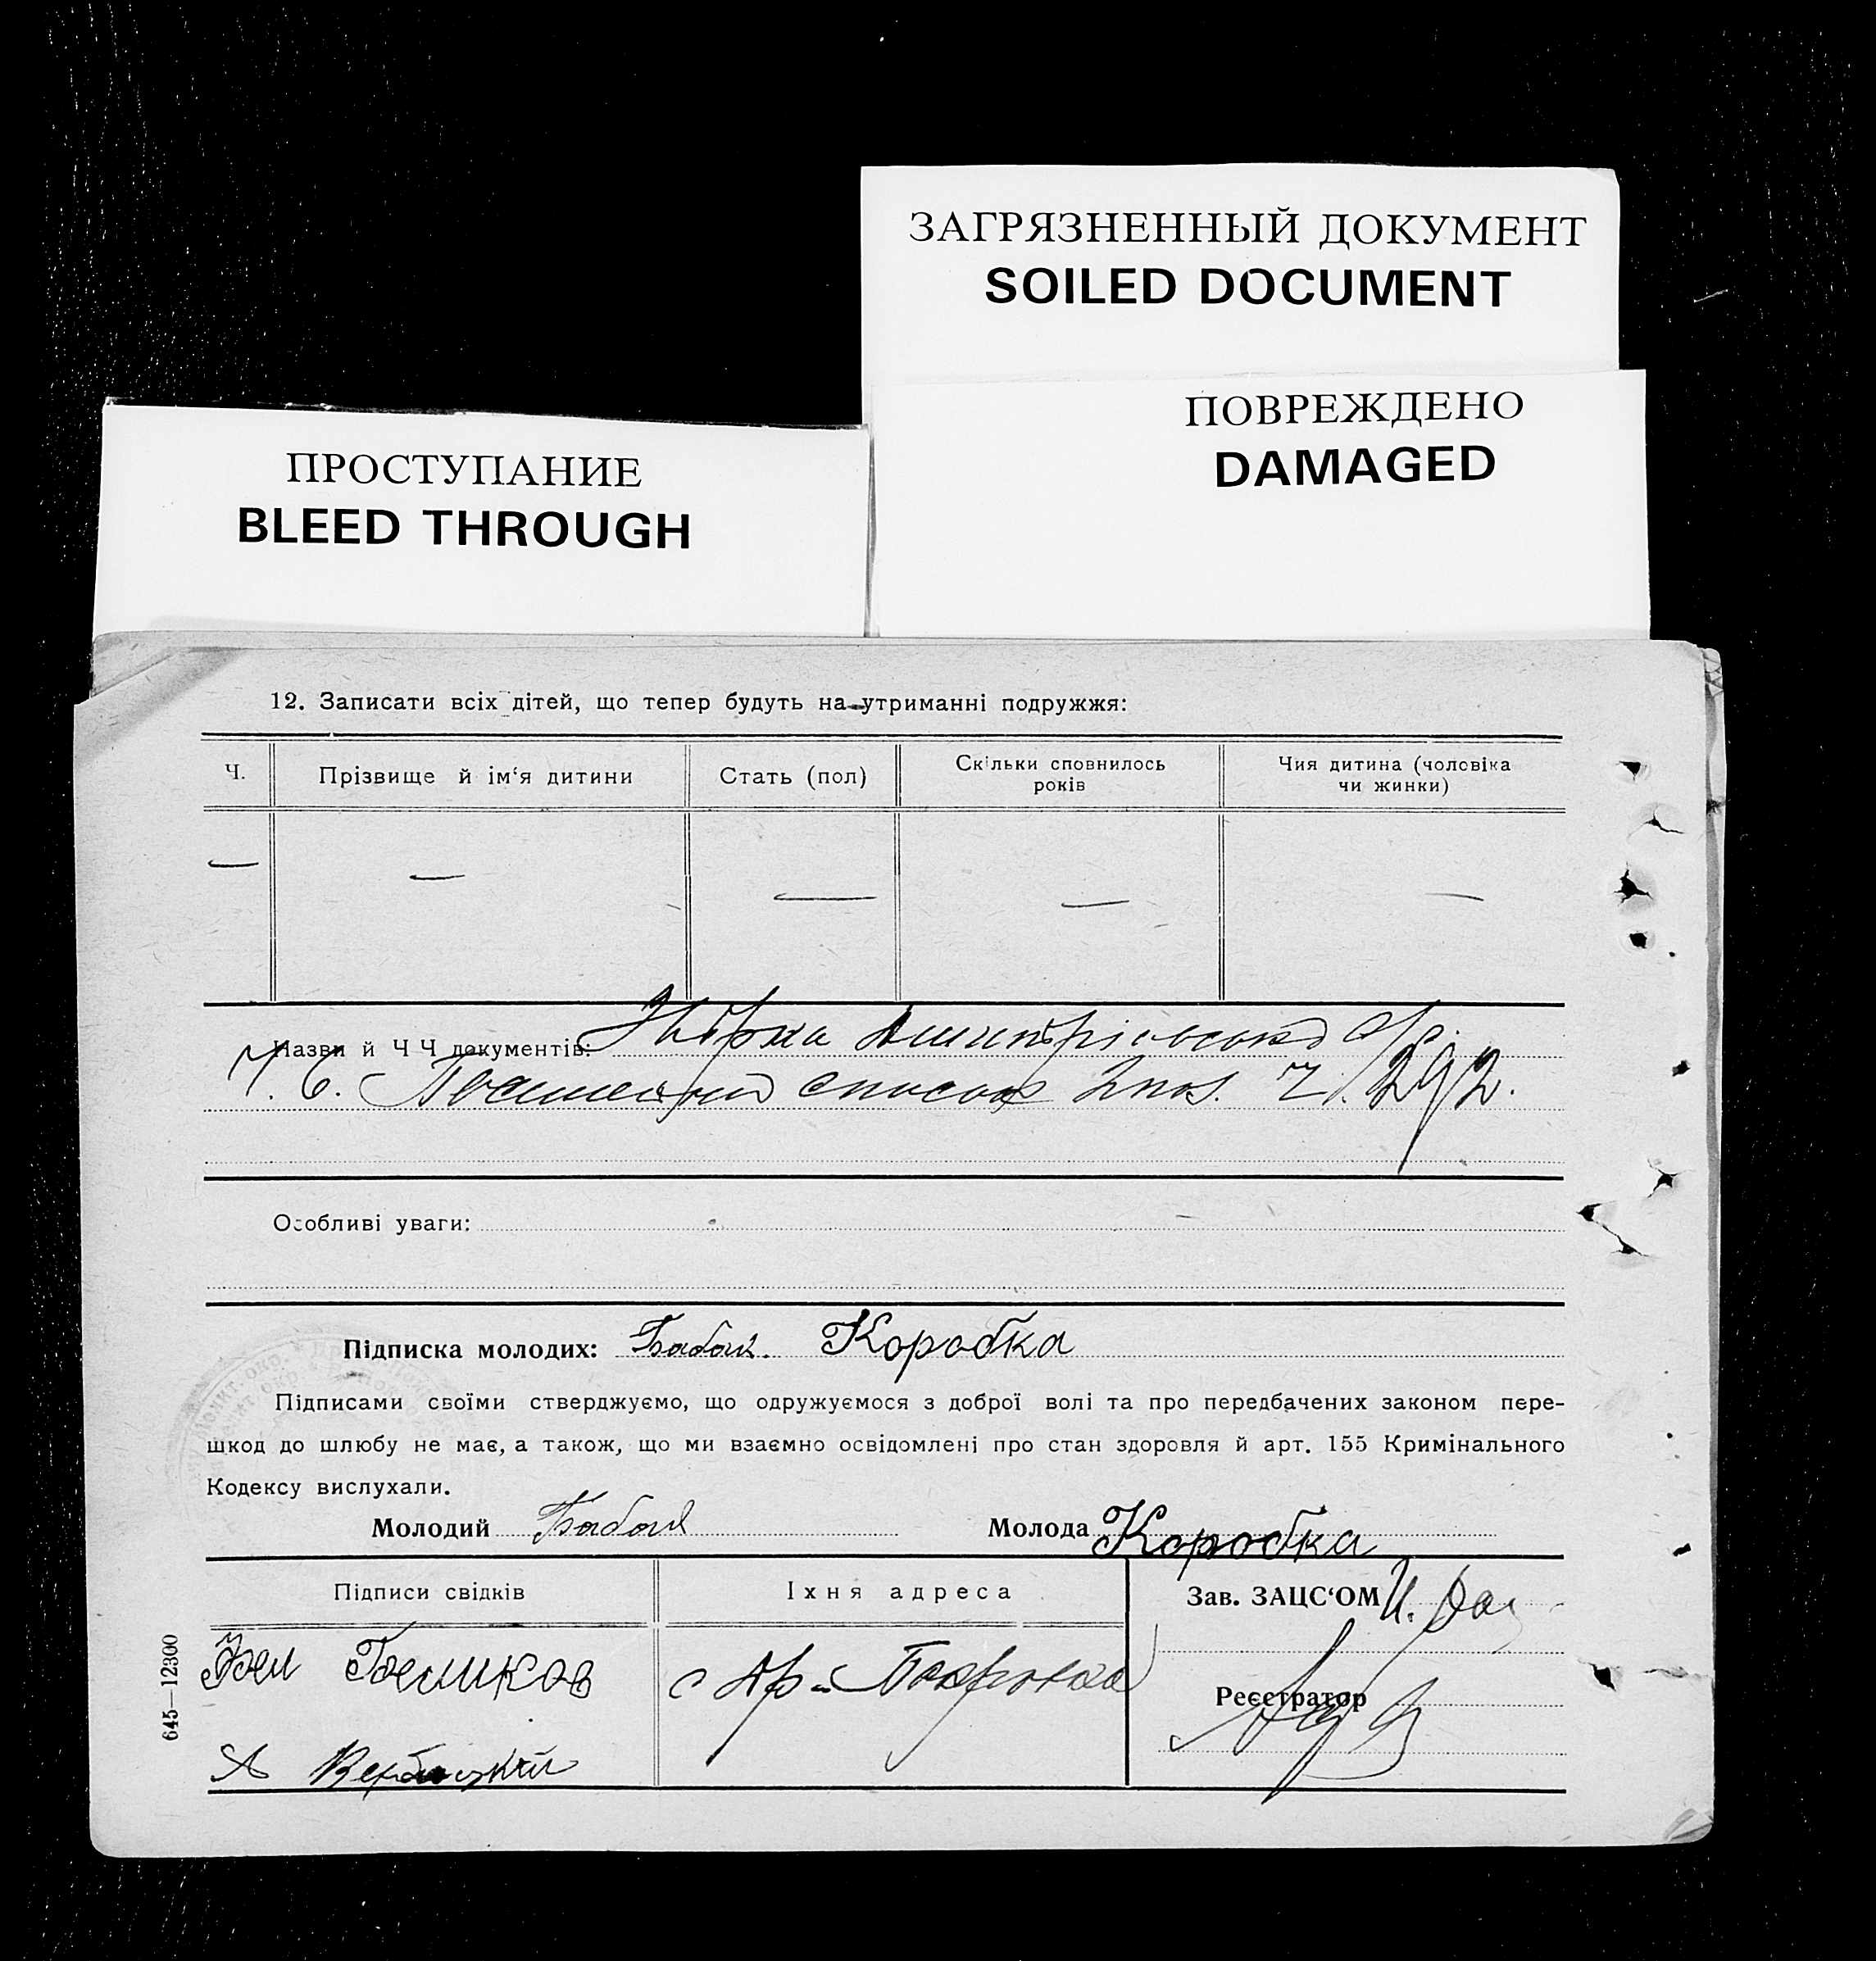 ЗАГРЯЗНЕННЫЙ ДОКУМЕНТ
SOILED DOCUMENT
ПОВРЕЖДЕНО
DAMAGED
ПРОСТУПАНИЕ
BLEED THROUGH
12. Записати всіх дітей, що тепер будуть на утриманні подружжя:
Ч.
Прізвище й ім‘я дитини
Стать (пол)
Скільки сповнилось
років
Чия дитина (чоловіка
чи жинки)
— — — — —
Назви й Ч Ч документів:
список 2 пол. Ч. 292.
Особливі уваги:
Підписка молодих: Бабак. Коробка
Підписами своїми стверджуємо, що одружуємося з доброї волі та про передбачених законом пере-
шкод до шлюбу не має, а також, що ми взаємно освідомлені про стан здоровля й арт. 155 Кримінального
Кодексу вислухали.
Молодий Бабак Молода Коробка
Підписи свідків
Їхня адреса
Зав. ЗАЦС‘ОМ
Беликов
с Ар-
Реєстратор
А Вербицкий
645—12300